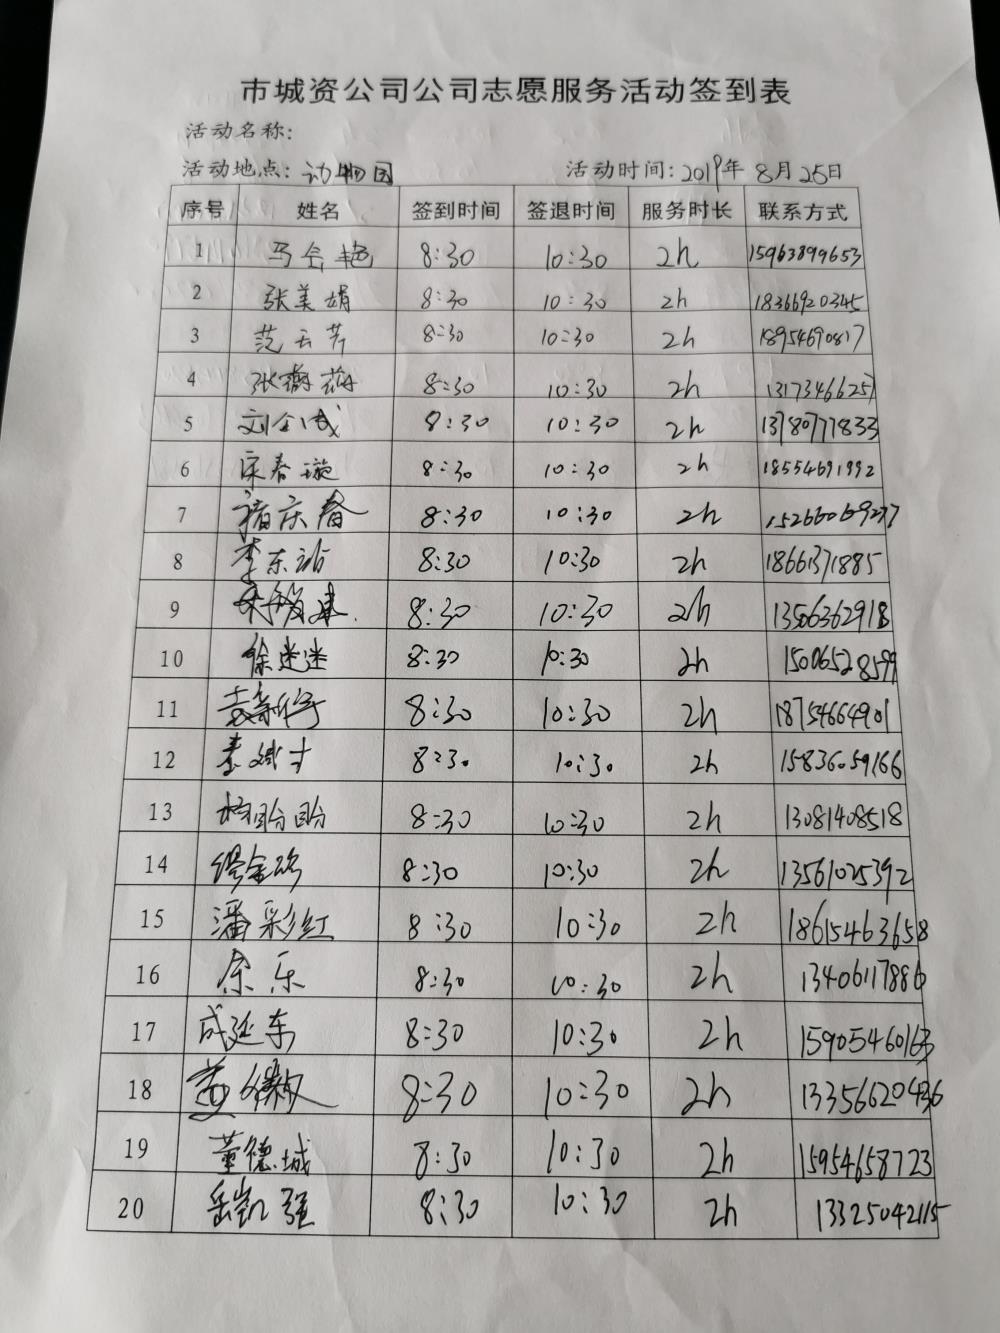 市城资公司公司志愿服务活动签到表
活动名称:
活动地点: 动物园 活动时间: 2019年 8月25日
序号 姓名 签到时间 签退时间 服务时长 联系方式
1 马会艳 8:30 10:30 2h 15963899653
2 张美娟 8:30 10:30 2h 18366920345
3 范云芳 8:30 10:30 2h 18954690817
4 8:30 10:30 2h
5 8:30 10:30 2h 13780771833
6 宋春璇 8:30 10:30 2h 18554691992
7 褚庆春 8:30 10:30 2h
8 李东 8:30 10:30 2h 18661371885
9 8:30 10:30 2h 13506362918
10 徐迷迷 8:30 10:30 2h 15006528599
11 8:30 10:30 2h 18754664901
12 8:30 10:30 2h 15836059166
13 盼盼 8:30 10:30 2h 13081408518
14 8:30 10:30 2h 13561025392
15 潘彩红 8:30 10:30 2h 18615463658
16 余乐 8:30 10:30 2h 13406117886
17 成延东 8:30 10:30 2h 15905460163
18 8:30 10:30 2h
19 董德城 8:30 10:30 2h 15954658723
20 岳凯强 8:30 10:30 2h 13325042115